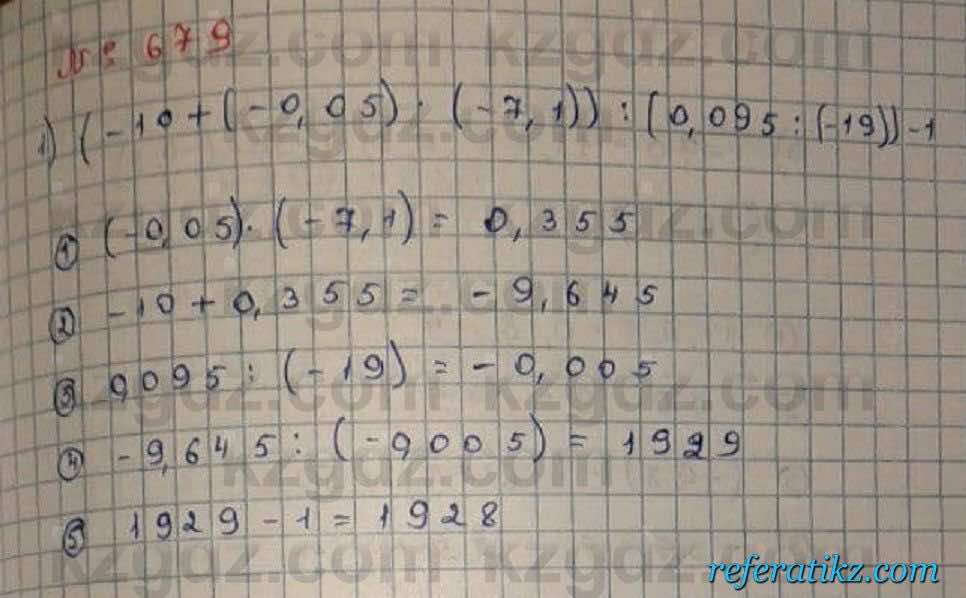 № 679
1) (-10+(-0,05)·(-7,1)):(0,095:(-19))-1
① (-0,05)·(-7,1)=0,355
② -10+0,355=-9,645
③ 0,095:(-19)=-0,005
④ -9,645:(-0,005)=1929
⑤ 1929-1=1928
kzgdz.com kzgdz.com
referatikz.com